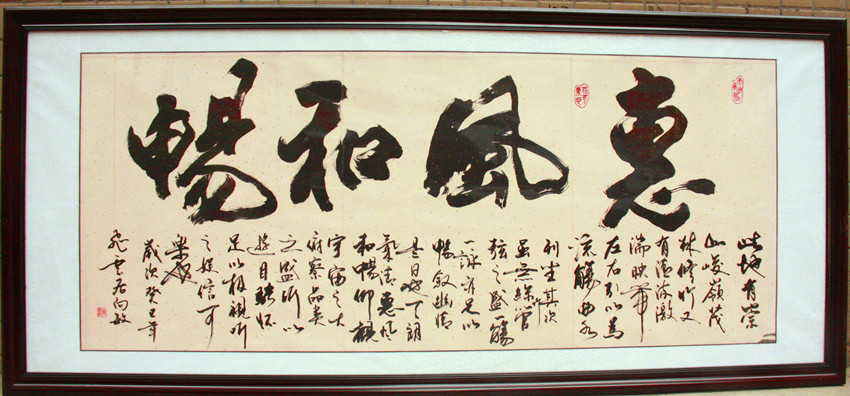 惠風和暢
此地有崇
山峻嶺茂
林修竹又
有清流激
湍映帶
左右引以為
流觴曲水
列坐其次
雖無絲竹管
弦之盛一觴
一詠亦足以
暢敘幽情
是日也天朗
氣清惠風
和暢仰觀
宇宙之大
俯察品類
之盛所以
遊目騁懷
足以極視聽
之娛信可
樂也
歲次癸巳年
飛雲向敏